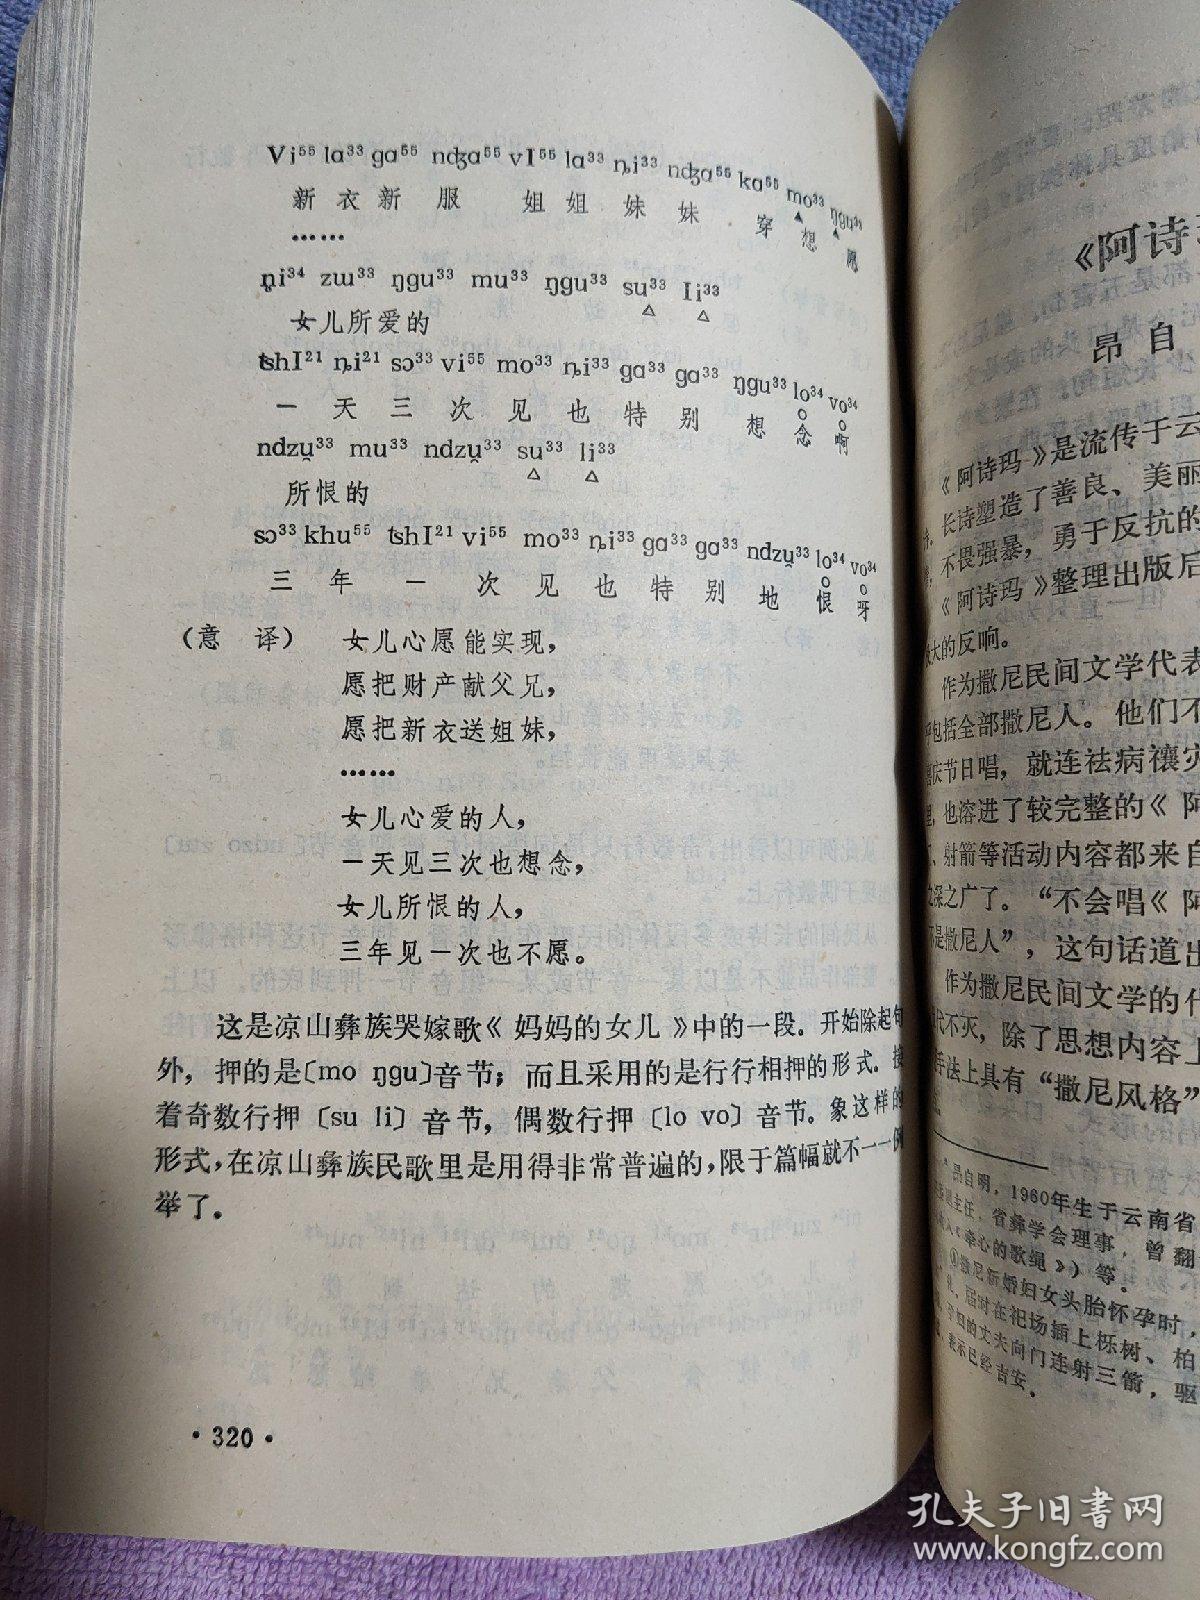 Vi⁵⁵ la³³ ga⁵⁵ nʤa⁵⁵ vI⁵⁵ la³³ ȵi³³ nʤa⁵⁵ ka⁵⁵ mo³³ ŋgu³¹
新 衣 新 服 姐 姐 妹 妹 穿 想 愿
……
ŋi³⁴ zɯ³³ ŋgu³³ mu³³ ŋgu³³ su³³ li³³
女儿所爱的
ʦhI²¹ ȵi²¹ sɔ³³ vi⁵⁵ mo³³ ȵi³³ ga³³ ga³³ ŋgu³³ lo³⁴ vo³⁴
一 天 三 次 见 也 特 别 想 念 啊
ndzṵ³³ mu³³ ndzṵ³³ su³³ li³³
所恨的
sɔ³³ khu⁵⁵ ʦhI²¹ vi⁵⁵ mo³³ ȵi³³ ga³³ ga³³ ndzṵ³³ lo³⁴ vo³⁴
三 年 一 次 见 也 特 别 地 恨 呀
（意 译） 女儿心愿能实现，
愿把财产献父兄，
愿把新衣送姐妹，
……
女儿心爱的人，
一天见三次也想念，
女儿所恨的人，
三年见一次也不愿。
这是凉山彝族哭嫁歌《妈妈的女儿》中的一段。开始除起句
外，押的是〔mo ŋgu〕音节；而且采用的是行行相押的形式。接
着奇数行押〔su li〕音节，偶数行押〔lo vo〕音节。象这样的
形式，在凉山彝族民歌里是用得非常普遍的，限于篇幅就不一一例
举了。
·320·
《阿诗
昂自
《阿诗玛》是流传于云
长诗塑造了善良、美丽
不畏强暴，勇于反抗的
《阿诗玛》整理出版后
大的反响。
作为撒尼民间文学代表
包括全部撒尼人。他们不
庆节日唱，就连祛病禳灾
里，也溶进了较完整的《阿
、射箭等活动内容都来自
之深之广了。“不会唱《阿
不是撒尼人”，这句话道出
作为撒尼民间文学的代
代不灭，除了思想内容上
手法上具有“撒尼风格”
昂自明，1960年生于云南省
主任，省彝学会理事，曾翻
《牵心的歌绳》）等。
撒尼新婚妇女头胎怀孕时，
礼，届时在祀场插上栎树、柏
孕妇的丈夫向门连射三箭，驱
表示已经吉安。
孔夫子旧书网
www.kongfz.com